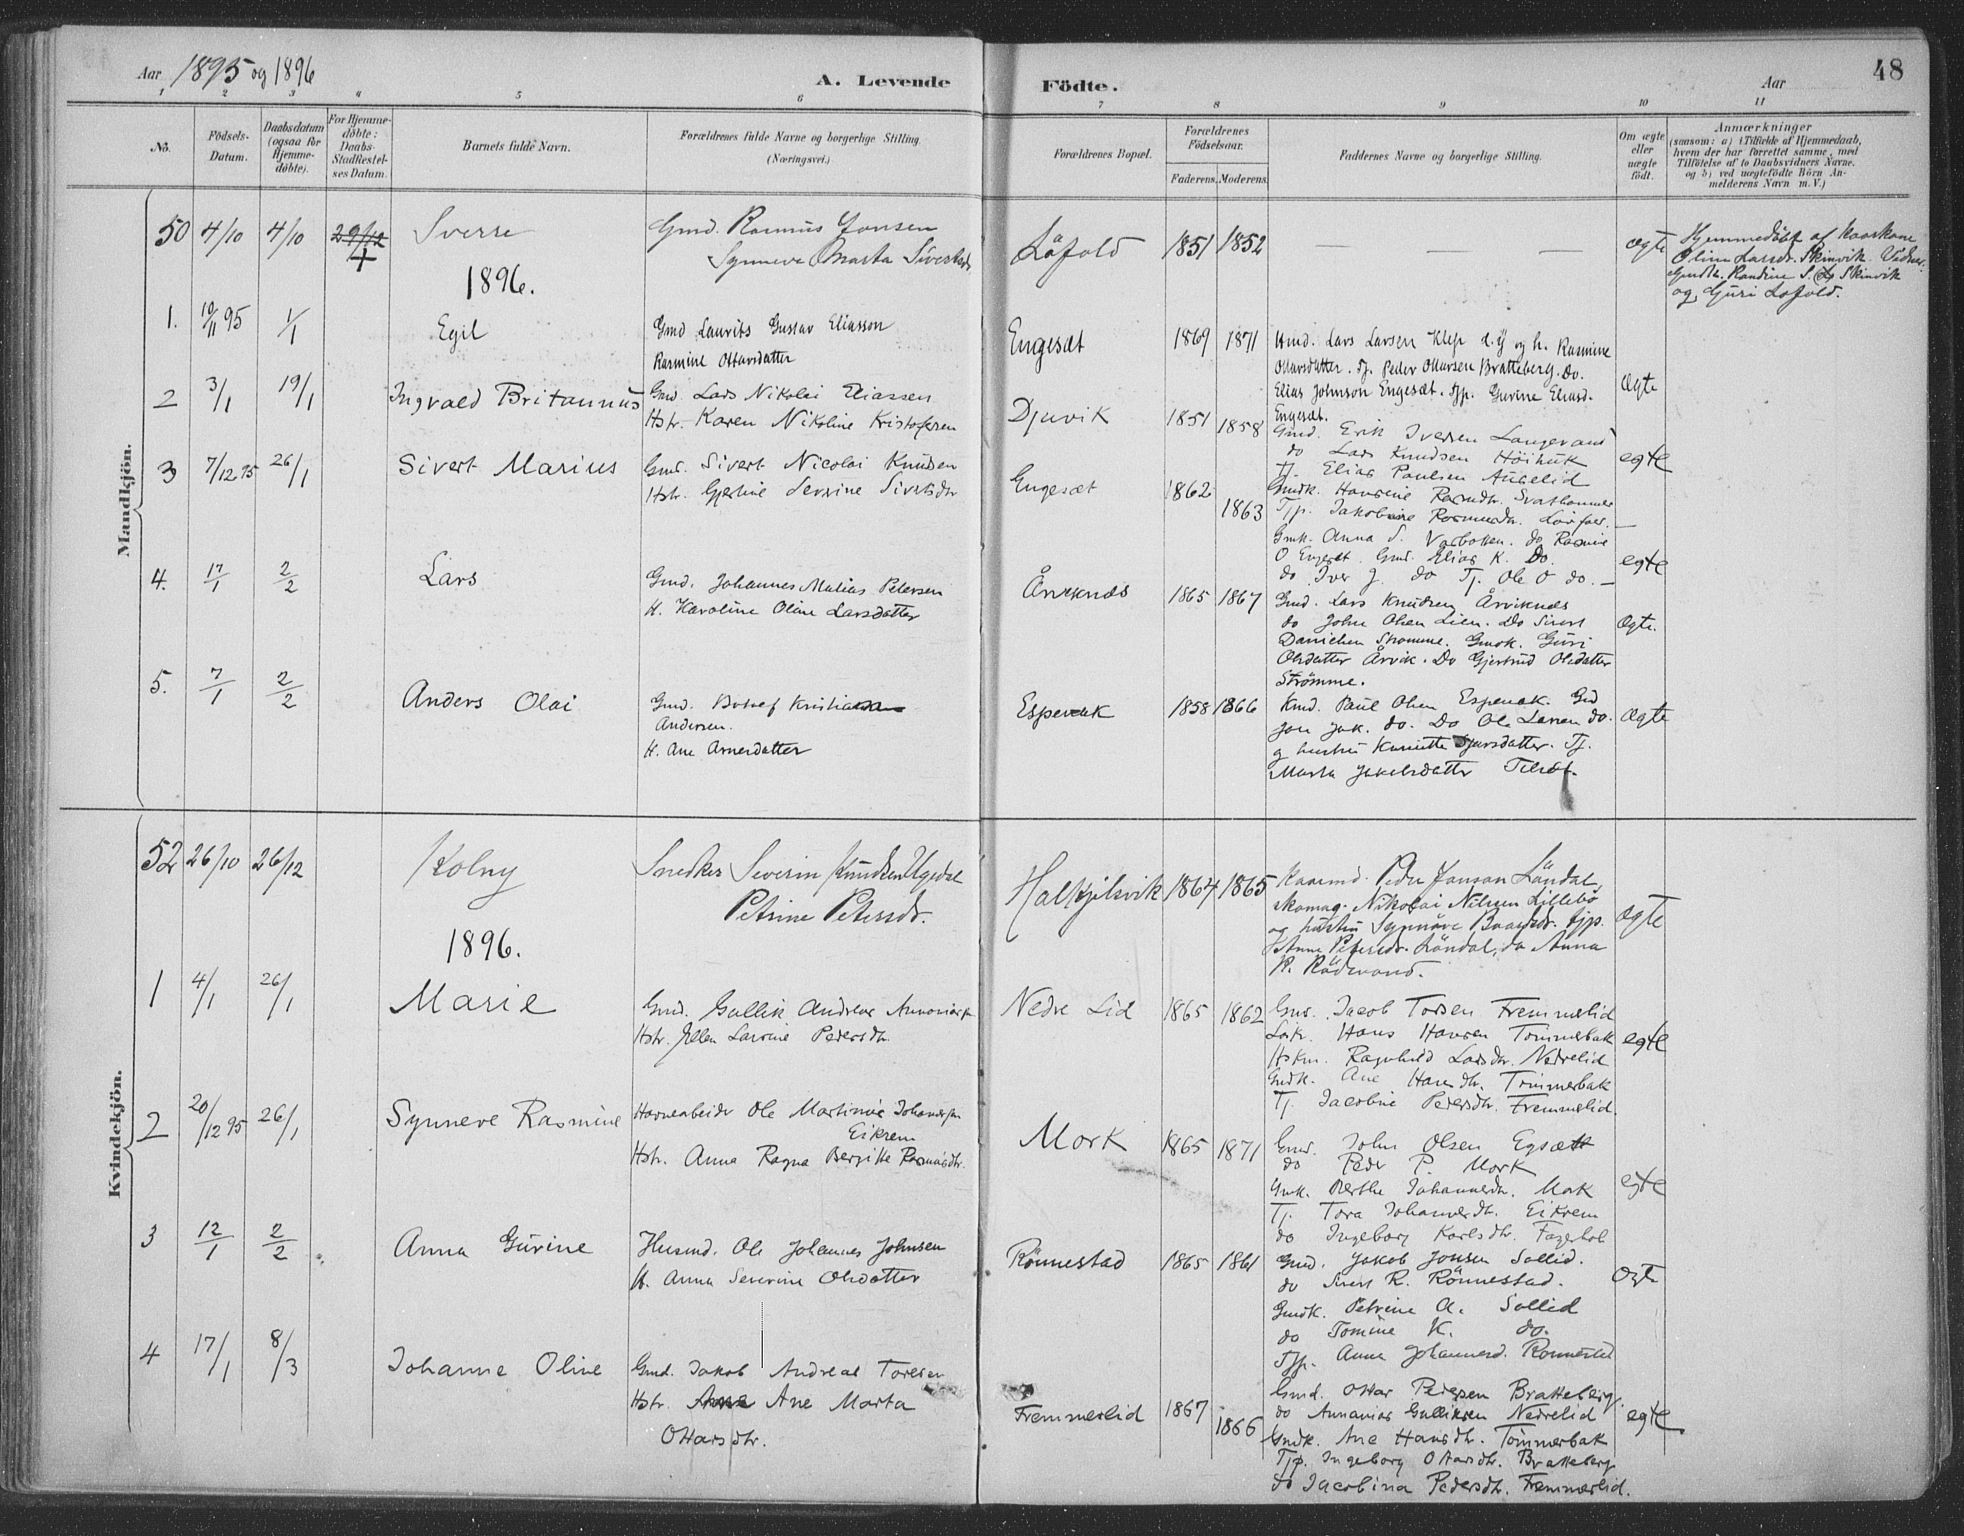 Aar 1895 og 1896
A. Levende Födte.
Aar
48
1 2 3 4 5 6 7 8 9 10 11
No.
Födsels-Datum.
Daabsdatum (ogsaa for Hjemmedöbte).
For Hjemmedöbte: Daabs-Stadfæstelses Datum.
Barnets fulde Navn.
Forældrenes fulde Navne og borgerlige Stilling.
(Næringsvei.)
Forældrenes Bopæl.
Forældrenes Födselsaar.
Faderens. Moderens.
Faddernes Navne og borgerlige Stilling.
Om ægte eller uægte födt.
Anmærkninger
(saasom: a) i Tilfælde af Hjemmedaab,
hvem der har forrettet samme, med
Tilföielse af to Daabsvidners Navne.
og b) ved uægtefödte Börn Anmelderens Navn m. V.)
Mandkjön.
50 4/10 4/10 29/12 Sverre
Gmd. Rasmus Jonsen
Synneve Marta Sivertsdr
Låfold 1851 1852 — — — ægte
Hjemmedöbt af Kaarkone
Oline Larsdr. Skinvik. Vidner
Gmdk. Randine S. Skinvik
og Guri Lofold.
1896.
1. 19/11 95 1/1 Egil
Gmd Laurits Gustav Eliasson
Rasmine Ottarsdatter
Engesæt 1869 1871
Hmd. Lars Larsen Klep d.y og h. Rasmine
Ottarsdatter. Tj. Peder Ottarsen Bratteberg. Do.
Elias Johnson Engesæt. Tjp. Gurine Eliasd.
Engesæt.
ægte
2 3/1 19/1 Ingvald Britannus
Gmd. Lars Nikolai Eliassen
Hstr. Karen Nikoline Kristofersen
Djuvik 1851 1858
Gmd. Erik Iversen Langevand
do Lars Knudsen Höihuk
Tj. Elias Paulsen Aurelid
Gmdk. Hansine Rasmdtr. Svarthammer
Tjp. Jakobine Rasmusdtr.
egte
3 7/12 95 26/1 Sivert Marius
Gmd. Sivert Nicolai Knudsen
Hstr. Gjertine Severine Sivertsdtr
Engesæt 1862 1863
Gmk. Anna S. Vorbakken. do Rasmine
O Engesæt Gmd. Elias K. Do.
do Iver J. do Tj. Ole O do. —
egte
4. 17/1 2/2 Lars
Gmd. Johannes Matias Petersen
H. Karoline Oline Larsdatter
Årviknes 1865 1867
Gmd. Lars Knudsen Årviknes
do John Olsen Lien. Do Sivert
Danielsen Strömme. Gmdk. Guri
Olsdatter Årvik. Do Gjertrud Olsdatter
Strömme.
ægte.
5. 7/1 2/2 Anders Olai
Gmd. Botolf Kristian
Andersen.
H. Ane Arnesdatter
Espenak 1858 1866
Kmd. Paul Olsen Espenak. Gmd
Jon Jak. do. Do Ole Larsen do.
g hustru Tj.
Marta Jakobsdatter
ægte
Kvindekjön.
52 26/10 26/12 Kolny
Snedker Severin Knudsen Ugedal
Petrine Petersdr.
Halkjelsvik 1864 1865
Kaarmd. Peder Jonson Låndal
skomag. Nikolai Nilsen Lillebö
og hustru Synnöve Baardsdr. tjp.
Anne Petersdr. Låndal, do Anna
P. Rödvand.
ægte
1896.
1 4/1 26/1 Marie
Gmd. Gullik Andreas Annaniasen
Hstr. Ellen Lavine Pedersdtr.
Nedre Lid 1865 1862
Gmd. Jacob Torsen Fremmerlid
Hans Hansen Tömmerbak
Hskm. Ragnhild Larsdtr. Nedrelid
Gmdk. Ane Hansdtr. Tömmerbak
Tj. Jacobine Pedersdtr. Fremmerlid.
egte
2 20/12 95 26/1 Synneve Rasmine
Havnearbeider Ole Martinus Johansen
Eikrem
Hstr. Anna Ragna Bergitte Rasmusdtr.
Mork 1865 1871
Gmd. John Olsen Egsæt
do Peder P. Mork
Gmk. Berthe Johannesdtr. Mork
Tj. Tora Johannesdtr. Eikrem
do Ingeborg Karlsdtr. Fagerhol
egte
3 12/1 2/2 Anna Gurine
Husmd. Ole Johannes Johnsen
H. Anna Severine Olsdatter
Rönnestad 1865 1861
Gmd. Jakob Jonsen Sollid.
do Sivert R. Rönnestad.
Gmdk. Petrine A. Sollid
do Tomine K. do.
Tjp. Anna Johannesd. Rönnestad
ægte
4 17/1 8/3 Johanne Oline
Gmd. Jakob Andreas Toresen
Hstr. Ane Marta
Ottarsdtr.
Fremmerlid 1867 1866
Gmd. Ottar Pedersen Bratteberg.
do Annanias Gulliksen Nedrelid
Gmdk. Ane Hansdtr. Tömmerbak
Tjp. Ingeborg Ottarsdtr. Bratteberg
do Jacobina Pedersdtr. Fremmerlid.
egte